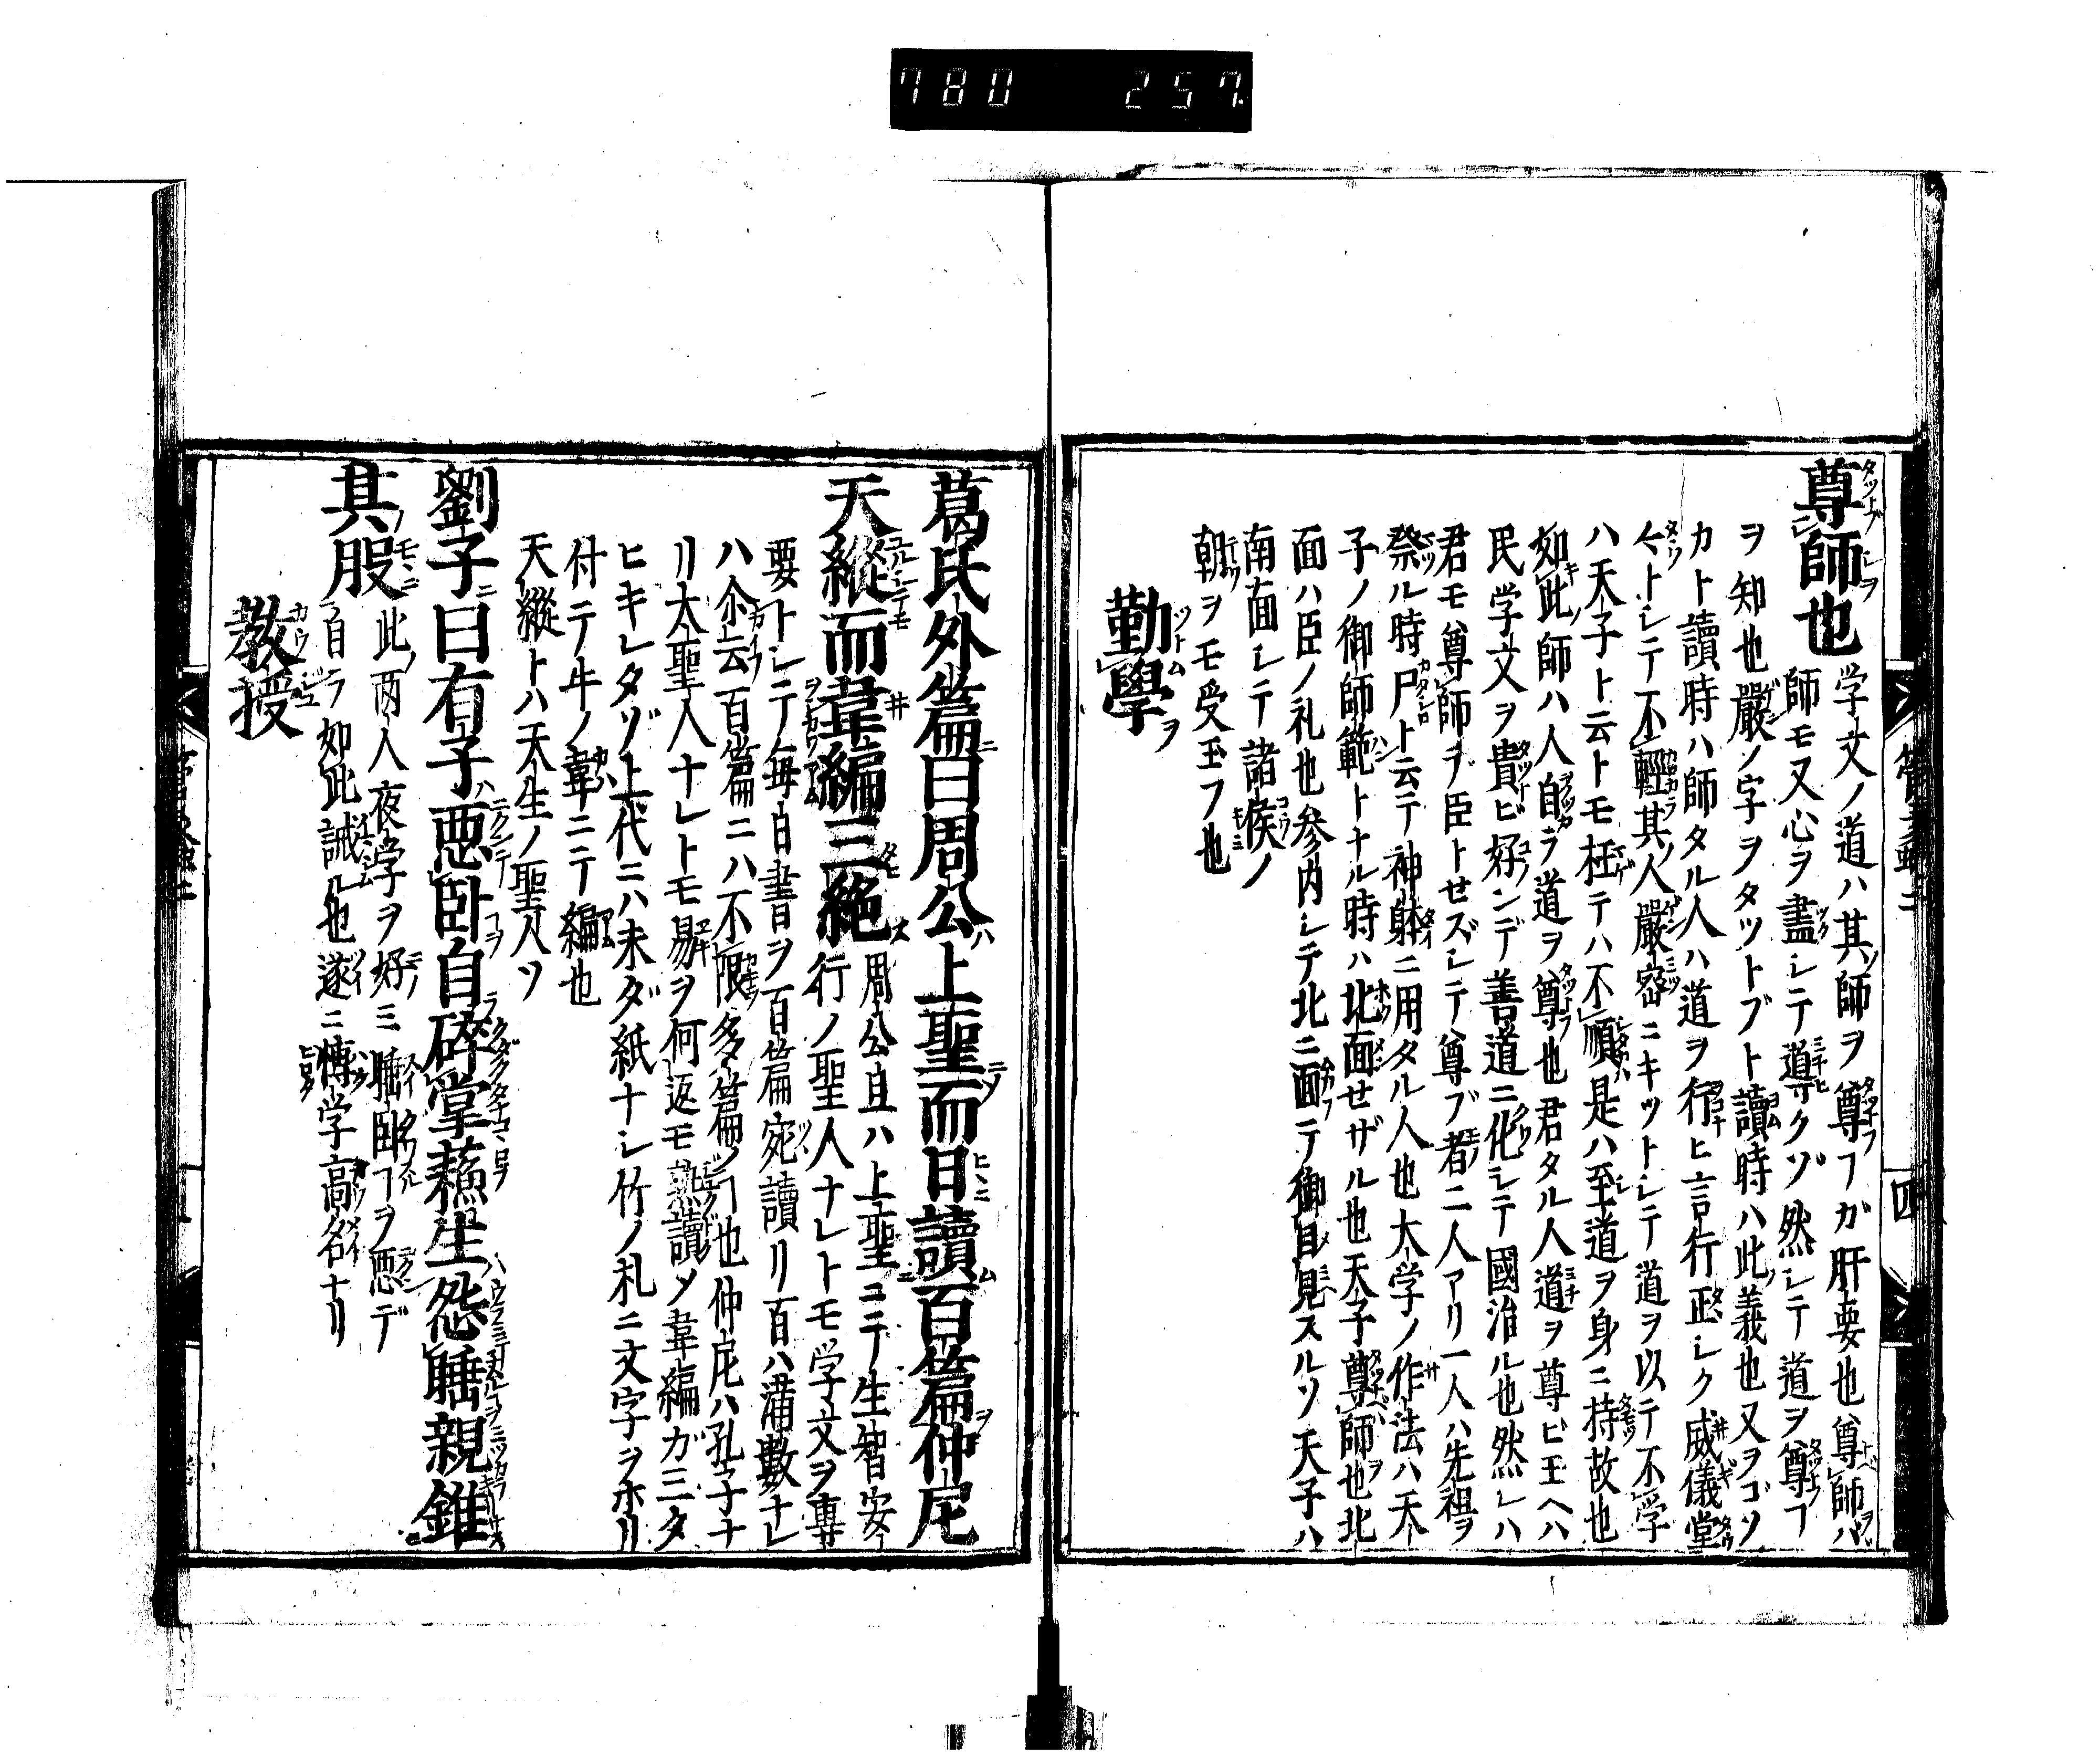 780 257
尊師也
学文ノ道ハ其師ヲ尊フヿガ肝要也尊師ハ
師モ又心ヲ盡シテ導クゾ然シテ道ヲ尊フヿ
ヲ知也嚴ノ字ヲタットブト讀時ハ此義也又ヲゴソ
カト讀時ハ師タル人ハ道ヲ行ヒ言行正シク威儀堂
々トシテ不輕其人嚴密ニキットシテ道ヲ以テ不学
ハ天子ト云トモ枉テハ不順是ハ至道ヲ身ニ持故也
如此師ハ人自ラ道ヲ尊也君タル人道ヲ尊ビ玉ヘハ
民学文ヲ貴ビ好ンデ善道ニ化シテ國治ル也然レハ
君モ尊師ヲ臣トせズシテ尊ブ者二人アリ一人ハ先祖ヲ
祭ル時尸ト云テ神躰ニ用タル人也大学ノ作法ハ天
子ノ御師範トナル時ハ北面せザル也天子尊師也北
面ハ臣ノ礼也参内シテ北ニ面テ御目見スルソ天子ハ
南面シテ諸侯ノ
朝ヲモ受玉フ也
勤學
葛氏外篇曰周公上聖而日讀百篇仲尼
天縱而韋編三絶
周公旦ハ上聖ニテ生智安
行ノ聖人ナレトモ学文ヲ専
要トシテ毎日書ヲ百篇宛讀リ百ハ満數ナレ
ハ尒云百篇ニハ不限多篇ノヿ也仲尼ハ孔子ナ
リ太聖人ナレトモ易ヲ何返モ熟讀メ韋編ガ三タ
ヒキレタゾ上代ニハ未ダ紙ナシ竹ノ札ニ文字ヲホリ
付テ牛ノ韋ニテ編也
天縱トハ天生ノ聖人ソ
劉子曰有子惡卧自碎掌蘓生怨睡親錐
其股
此両人夜学ヲ好ミ睡卧ヿヲ惡デ
自ラ如此誡ル也遂ニ博学高名ナリ
教授